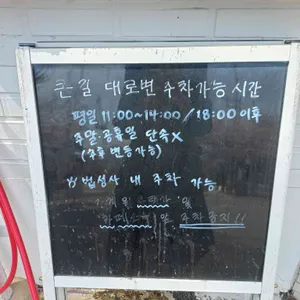 큰길 대로변 주차가능 시간
평일 11:00~14:00 / 18:00 이후
주말.공휴일 단속X
(추후 변동가능)
법성사 내 주차 가능
및
주차금지!!